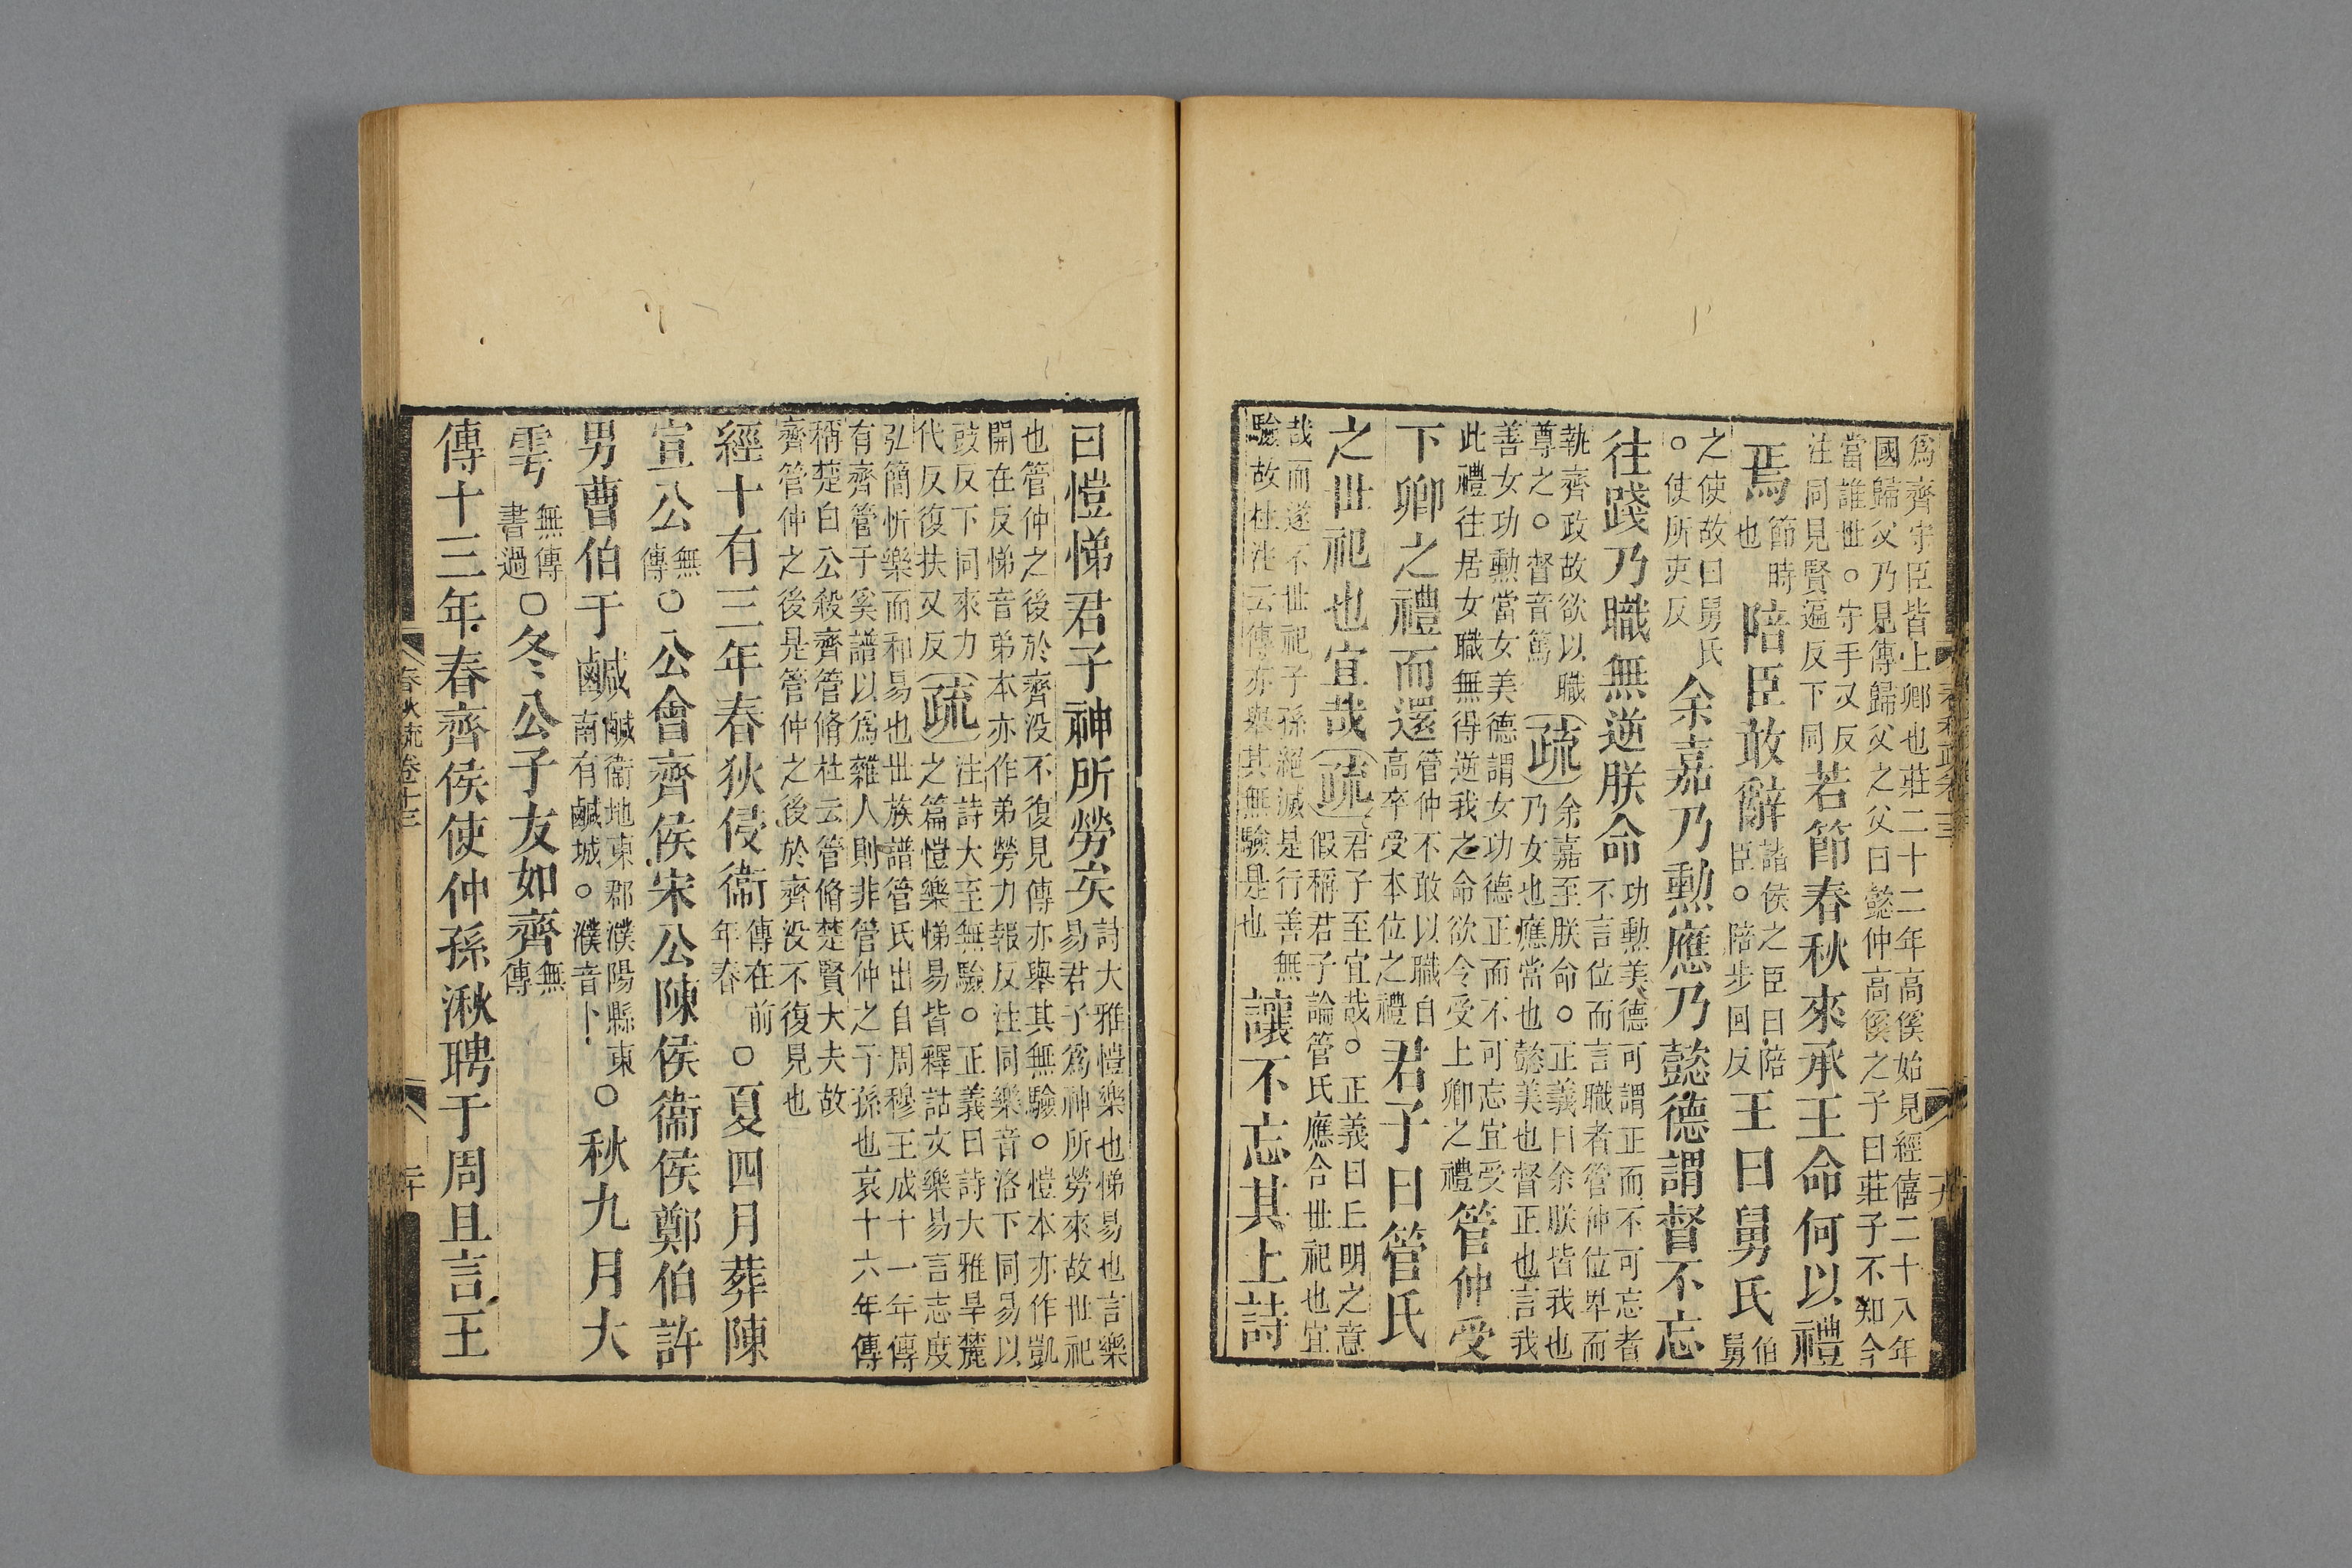 爲齊守臣皆上卿也莊二十二年高傒始見經僖二十八年
國歸父乃見傳歸父之父曰懿仲高傒之子曰莊子不知今
當誰世○守手又反
注同見賢遍反下同
若節春秋來承王命何以禮
焉
節時
也
陪臣敢辭
諸侯之臣曰陪
臣○陪步回反
王曰舅氏
伯舅
之使故曰舅氏
○使所吏反
余嘉乃勲應乃懿德謂督不忘
往踐乃職無逆朕命
功勲美德可謂正而不可忘者
不言位而言職者管仲位卑而
執齊政故欲以職
尊之○督音篤
疏
余嘉至朕命○正義曰余朕皆我也
乃女也應當也懿美也督正也言我
善女功勲當女美德謂女功德正而不可忘宜受
此禮往居女職無得逆我之命欲令受上卿之禮
管仲受
下卿之禮而還
管仲不敢以職自
高卒受本位之禮
君子曰管氏
之世祀也宜哉
疏
君子至宜哉○正義曰丘明之意
假稱君子論管氏應合世祀也宜
哉而遂不世祀子孫絕滅是行善無
驗故杜注云傳亦舉其無驗是也
讓不忘其上詩
曰愷悌君子神所勞矣
詩大雅愷樂也悌易也言樂
易君子爲神所勞來故世祀
也管仲之後於齊沒不復見傳亦舉其無驗○愷本亦作凱
開在反悌音弟本亦作弟勞力報反注同樂音洛下同易以
豉反下同來力
代反復扶又反
疏
注詩大至無驗○正義曰詩大雅旱麓
之篇愷樂悌易皆釋詁文樂易言志度
弘簡忻樂而和易也世族譜管氏出自周穆王成十一年傳
有齊管于奚譜以爲雜人則非管仲之子孫也哀十六年傳
稱楚白公殺齊管脩杜云管脩楚賢大夫故
齊管仲之後是管仲之後於齊沒不復見也
經十有三年春狄侵衞
傳在前
年春
○夏四月葬陳
宣公
無
傳
○公會齊侯宋公陳侯衞侯鄭伯許
男曹伯于鹹
鹹衞地東郡濮陽縣東
南有鹹城○濮音卜
○秋九月大
雩
無傳
書過
○冬公子友如齊
無
傳
傳十三年春齊侯使仲孫湫聘于周且言王
春秋疏卷十三
二十